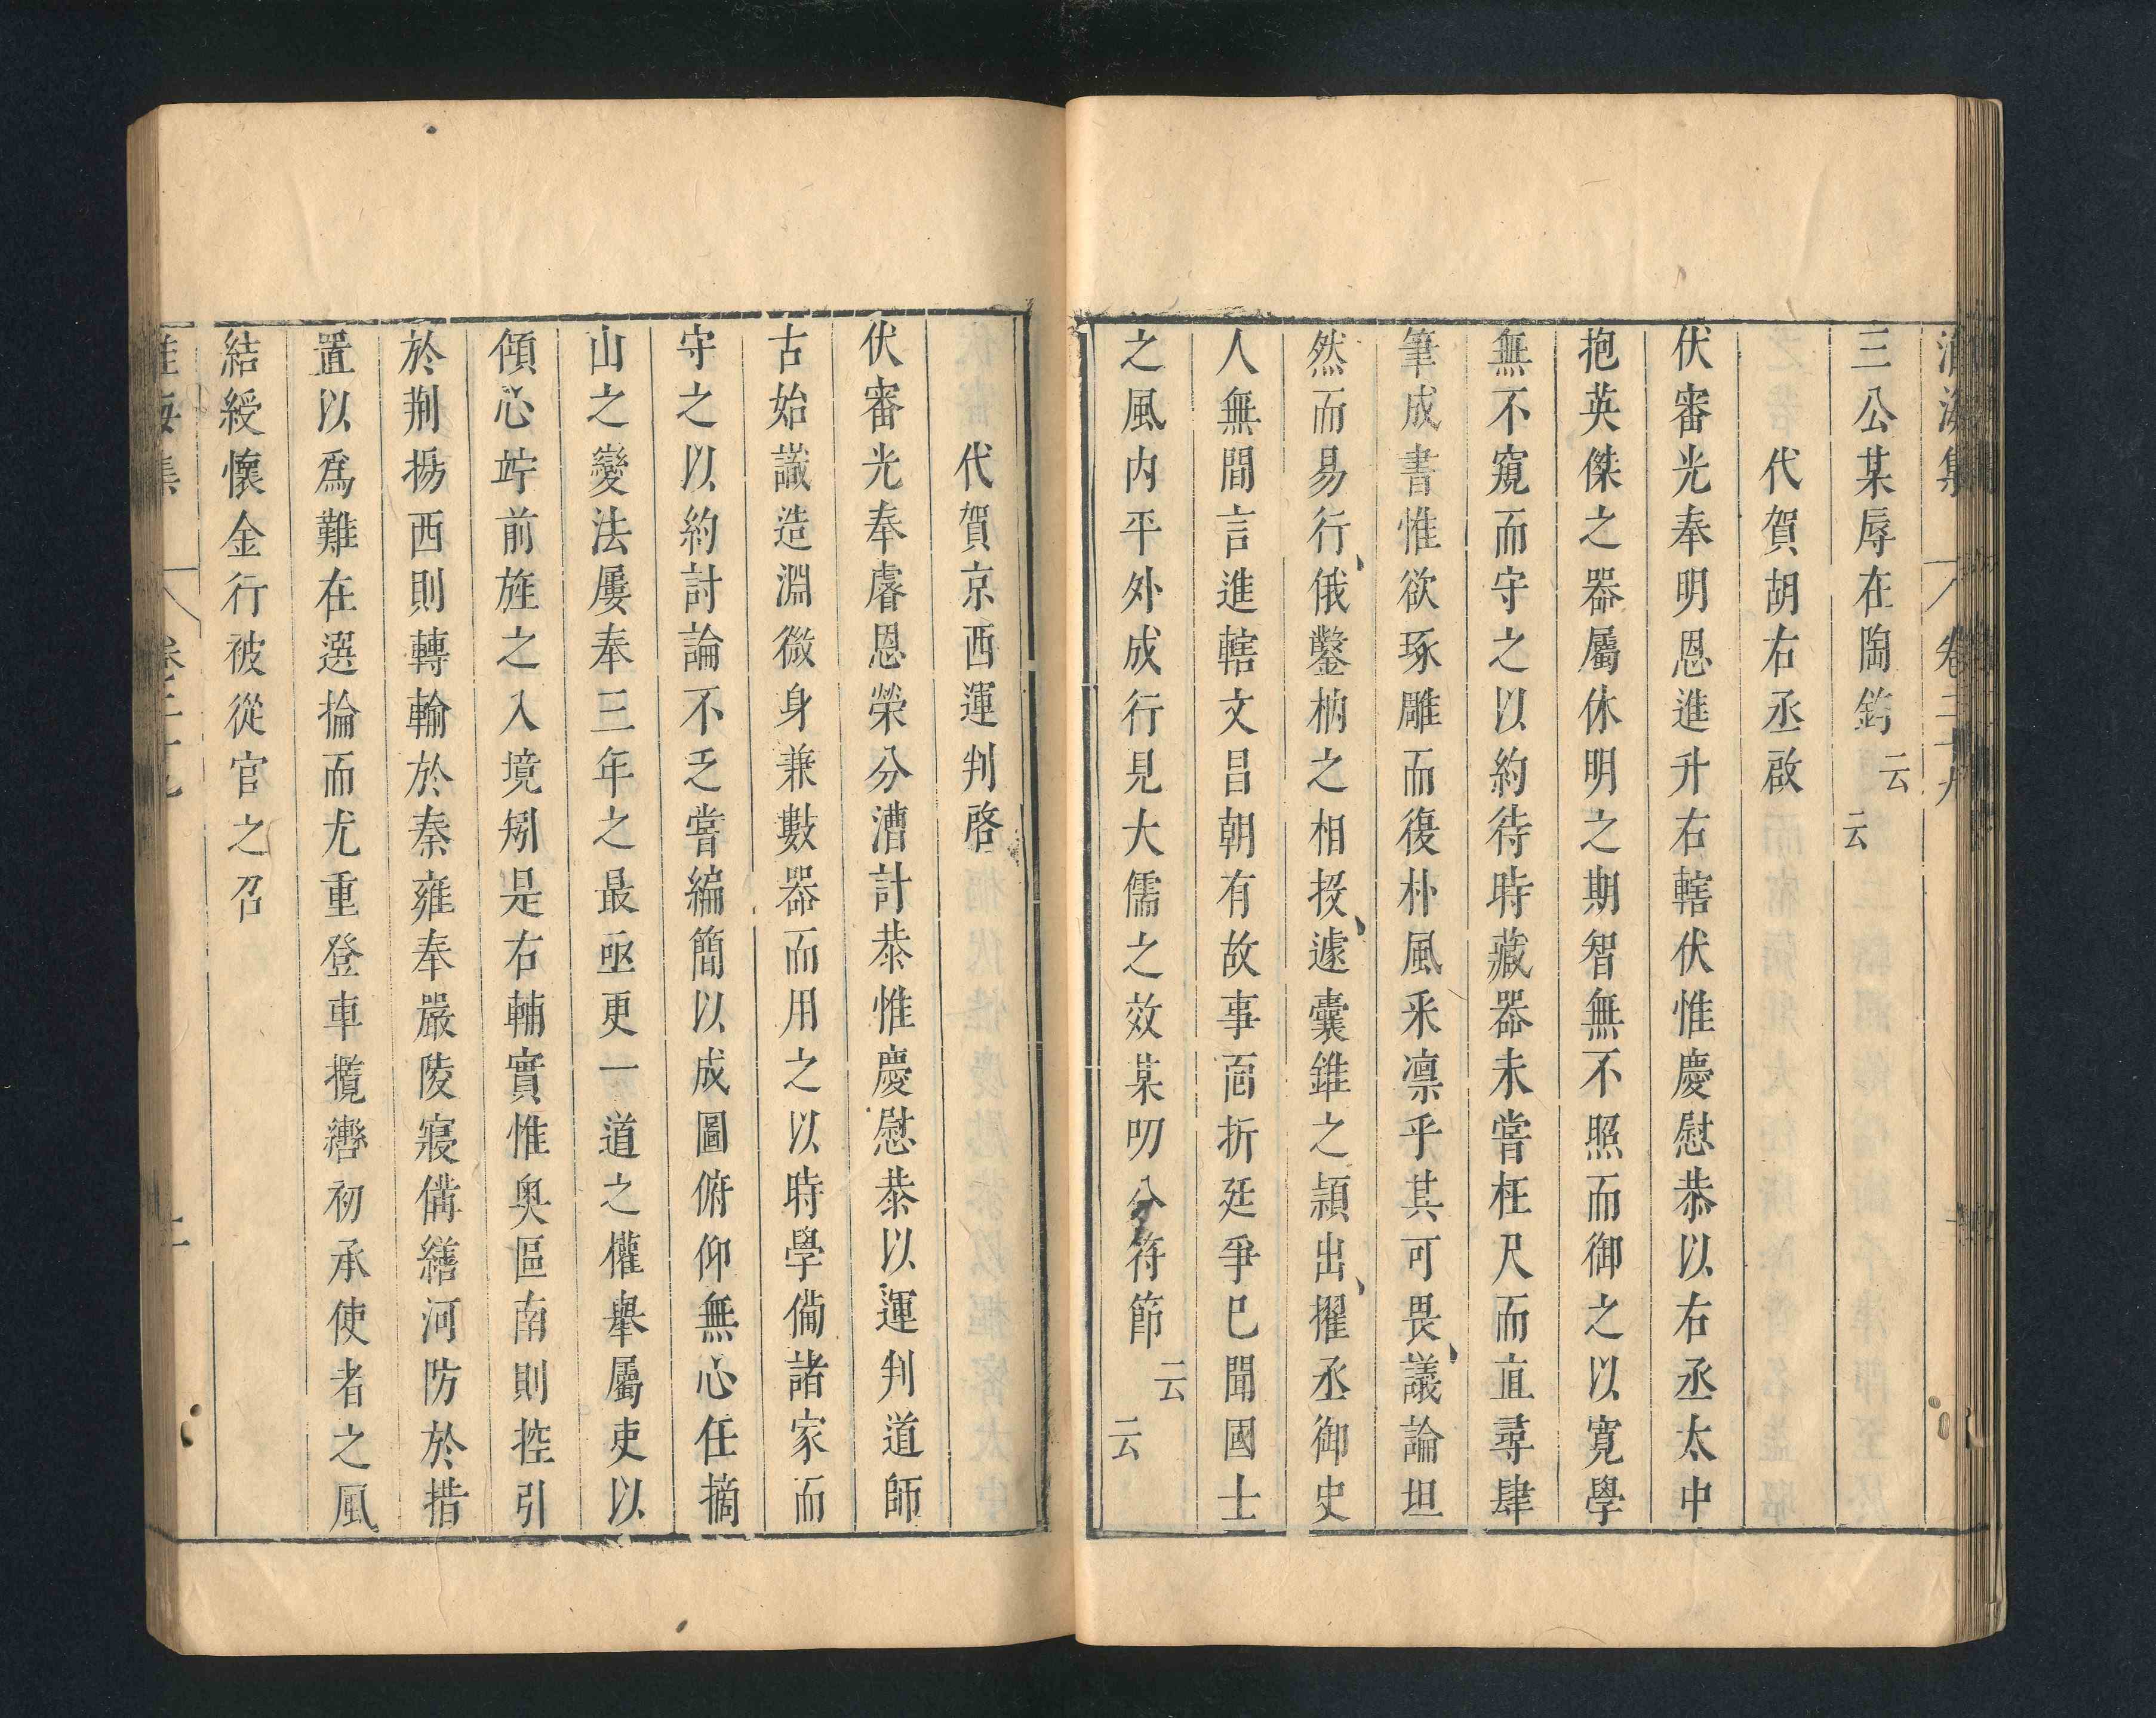 淮海集 卷二十九
三公某辱在陶鈞云云
代賀胡右丞啟
伏審光奉明恩進升右轄伏惟慶慰恭以右丞太中
抱英傑之器屬休明之期智無不照而御之以寬學
無不窺而守之以約待時藏器未嘗枉尺而直尋肆
筆成書惟欲琢雕而復朴風采凛乎其可畏議論坦
然而易行俄鑿枘之相投遽囊錐之頴出擢丞御史
人無間言進轄文昌朝有故事面折廷爭巳聞國士
之風内平外成行見大儒之效某叨分符節云云
代賀京西運判啓
伏審光奉睿恩榮分漕計恭惟慶慰恭以運判道師
古始識造淵微身兼數器而用之以時學備諸家而
守之以約討論不乏嘗編簡以成圖俯仰無心任摘
山之變法屢奉三年之最亟更一道之權舉屬吏以
傾心竚前旌之入境矧是右輔實惟奥區南則控引
於荆揚西則轉輸於秦雍奉嚴陵寢俻繕河防於措
置以爲難在選掄而尤重登車攬轡初承使者之風
結綬懷金行被從官之召
淮海集 卷二十九 二